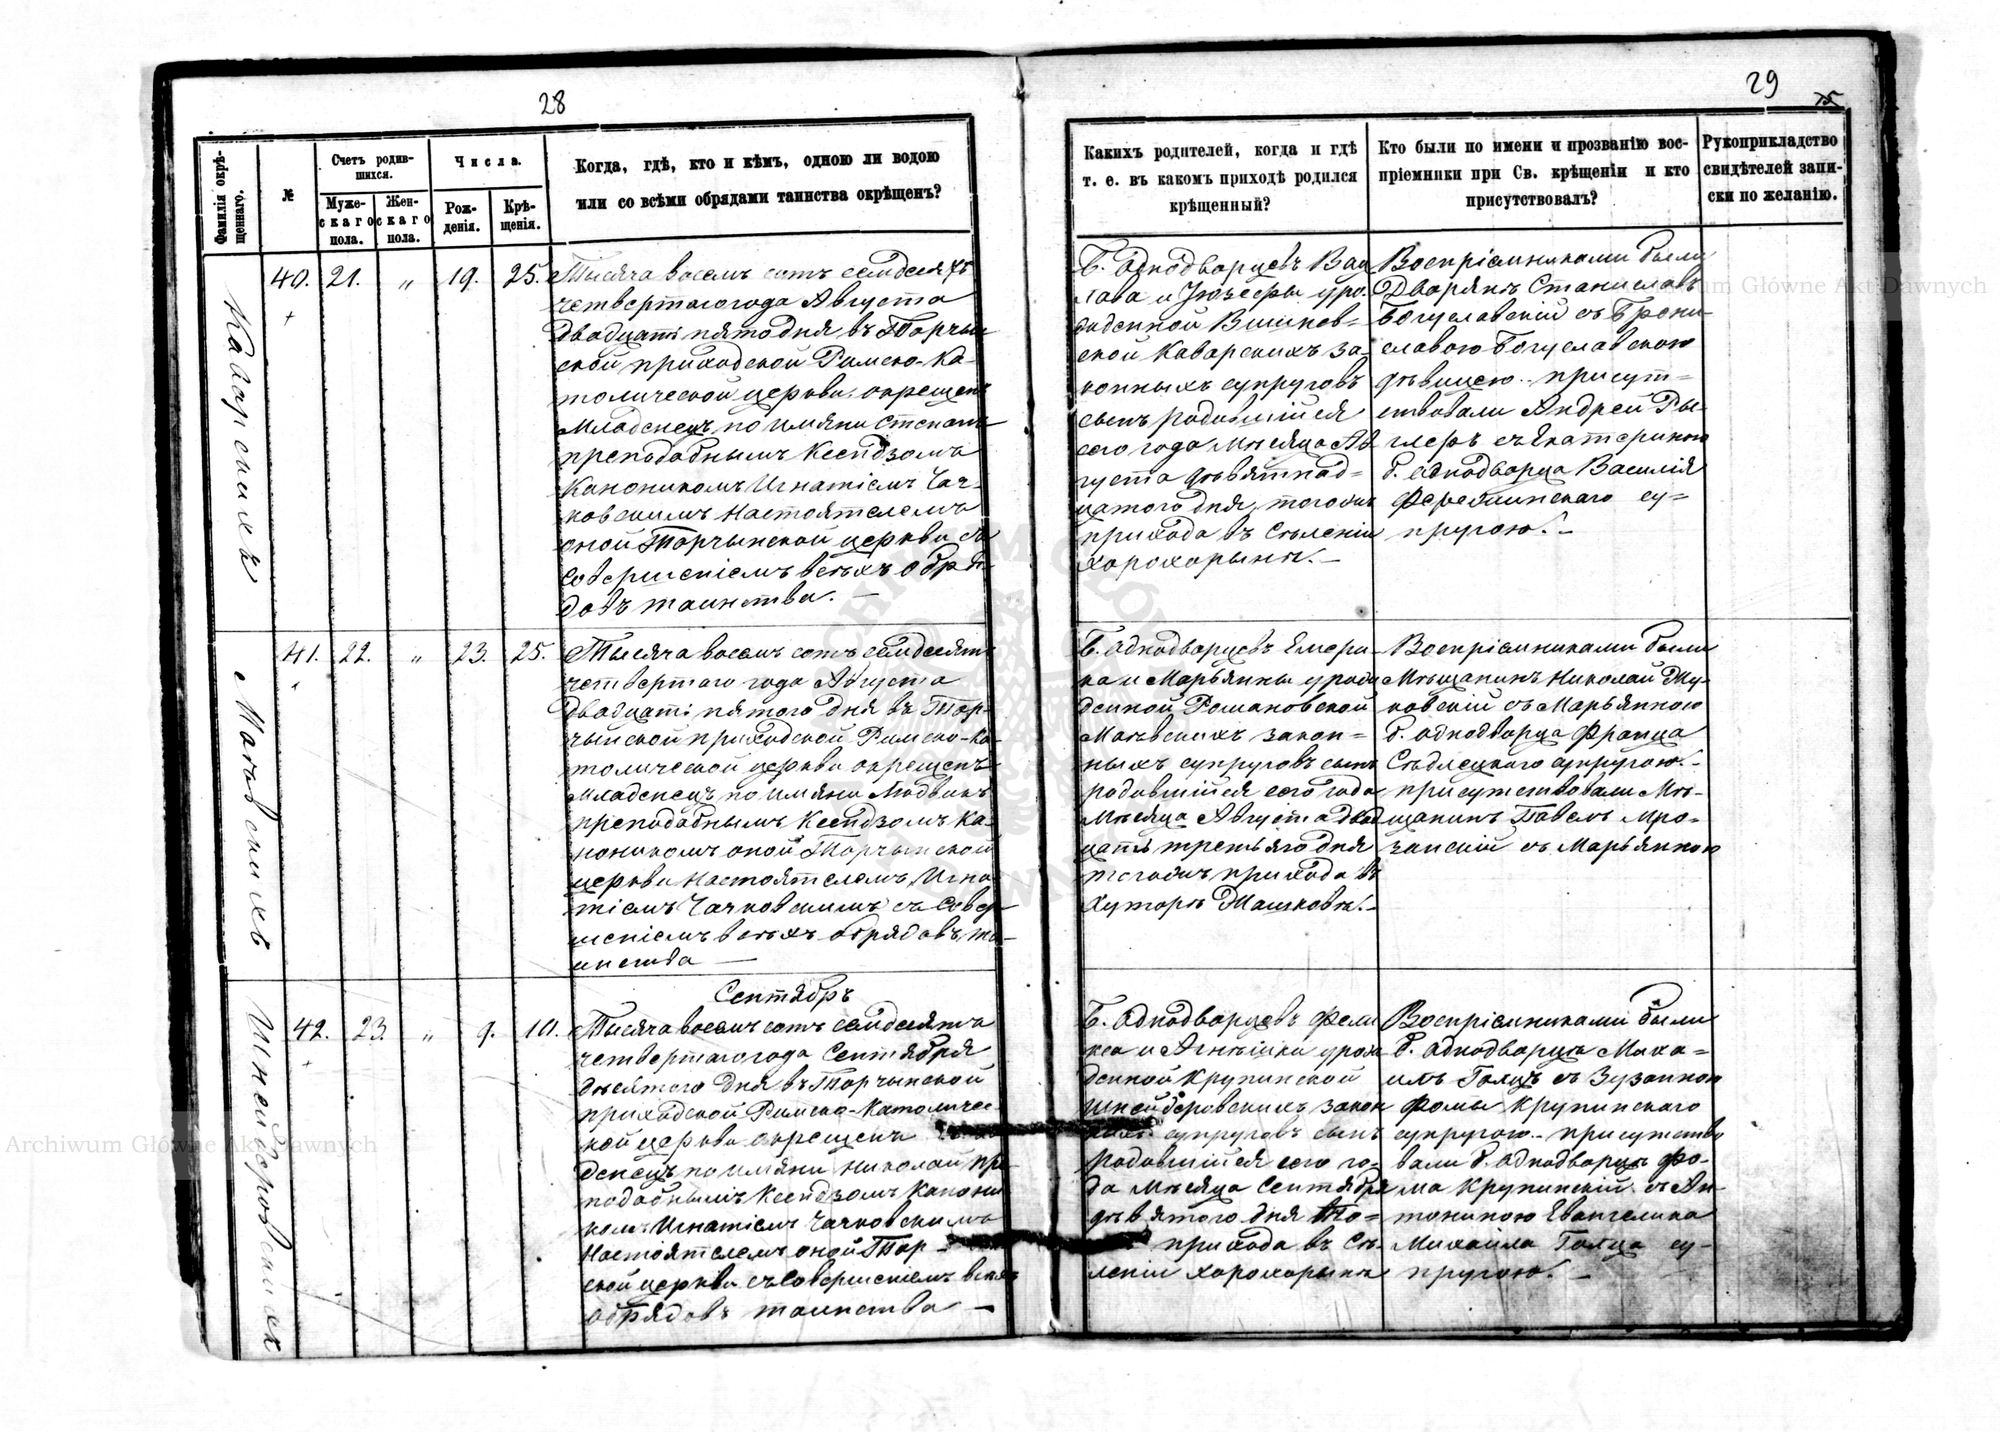 28
Фамилія окрѣ-
щеннаго.
№
Счетъ родив-
шихся.
Муже-
скаго
пола.
Жен-
скаго
пола.
Числа.
Рож-
денія.
Крѣ-
щенія.
Когда, гдѣ, кто и кѣмъ, одною ли водою
или со всѣми обрядами таинства окрѣщенъ?
Каварскихъ
40. 21. „ 19. 25.
Тысяча восемь сотъ семдесятъ
четвертаго года Августа
двадцать пято дня въ Торчин
ской приходской Римско-Ка-
толической церкви окрещенъ
Младенецъ по имяни Степанъ
преподобнымъ Ксендзомъ
Каноникомъ Игнатіемъ Чач-
ковскимъ Настоятелемъ
оной Торчынской церкви съ
Совершеніемъ всѣхъ обря-
довъ таинства. —
Маевскихъ
41. 22. „ 23. 25.
Тысяча восемь сотъ семдесятъ
четвертаго года Августа
двадцать пятого дня въ Тор-
чынской приходской Римско-Ка-
толической церкви окрещенъ
Младенецъ по имяни Людвикъ
преподобнымъ Ксендзомъ Ка-
ноникомъ оной Торчынской
церкви Настоятелемъ Игна-
тіемъ Чачковскимъ съ Совер-
шеніемъ всѣхъ обрядовъ та-
инства —
Шнейдеровских
42. 23. „ 9. 10.
Сентябръ
Тысяча восемь сотъ семдесятъ
четвертаго года Сентября
десятого дня въ Торчынской
приходской Римско-Католичес-
кой церкви окрещенъ
денецъ по имяни Николай пре-
подобнымъ Ксендзомъ Канони
комъ Игнатіемъ Чачковскимъ
Настоятелемъ оной Тор-
ской церкви съ Совершеніемъ всѣхъ
обрядовъ таинства —
29
75
Какихъ родителей, когда и гдѣ
т. е. въ какомъ приходѣ родился
крѣщенный?
Кто были по имени и прозванію вос-
пріемники при Св. крѣщеніи и кто
присутствовалъ?
Рукоприкладство
свидѣтелей запи-
ски по желанію.
Б. Однодворцевъ Вац
лава и Юзефы уро-
жденной Вишнев-
ской Каварскихъ за-
конныхъ супруговъ
сынъ родившійся
сего года Мѣсяца Ав
густа девятнад-
цатого дня, тогожъ
прихода въ Сѣленіи
Хорохорынѣ. —
Воспріемниками были
Дворянъ Станиславъ
Богуславскій съ Брони-
славою Богуславскою
дѣвицею.. присут-
ствовали Андрей Ры-
глеръ съ Екатериною
б. однодворца Василія
су-
пругою. —
Б. Однодворцевъ Емери-
ка и Марьянны урож
денной Романовской
Маевскихъ закон-
ныхъ супруговъ сынъ
родившійся сего года
Мѣсяца Августа двад
цать третьяго дня
тогожъ прихода въ
Хуторѣ Машковѣ. —
Воспріемниками были
Мѣщанинъ Николай Жу-
ковскій съ Марьянною
б. однодворца Франца
Сѣдлецкого супругою. —
присутствовали Мѣ-
щанинъ Павелъ Мро-
чанскій съ Марьянною
Б. Однодворцевъ Фели
кса и Агнѣшки урож
денной Крупинской
Шнейдеровскихъ закон
ныхъ супруговъ сынъ
родившійся сего го-
да Мѣсяца Сентября
девятого дня То-
прихода въ Сѣ-
леніи Хорохорынѣ
Воспріемниками были
б. Однодворцы Миха-
илъ Голцъ съ Зузанною
Фомы Крупинскаго
супругою.. присутство
вали б. однодворцы Фо-
ма Крупинскій съ Ан-
тониною Евангелика
Михаила Голца су-
пругою. —
Archiwum Główne Akt Dawnych